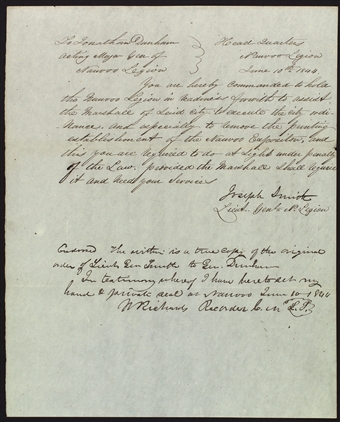 To Jonathan Dunham
acting Major Gen of
Nauvoo Legion
Head Quarters
Nauvoo Legion
June 10th 1844
You are hereby commanded to hold
the Nauvoo Legion in readiness forthwith to assist
the Marshall of said city to execute the city ordi
nance, and especially to remove the printing
establishment of the Nauvoo Expositor, and
this you are required to do at sight under penalty
of the Law. provided the Marshall shall require
it and need your services
Joseph Smith
Lieut. Genl N. Legion
The within is a true copy of the original
order of Lieut Gen Smith to Gen. Dunham
In testimony whereof I have hereto set my
hand & private seal at Nauvoo June 10 1844
W Richards Recorder